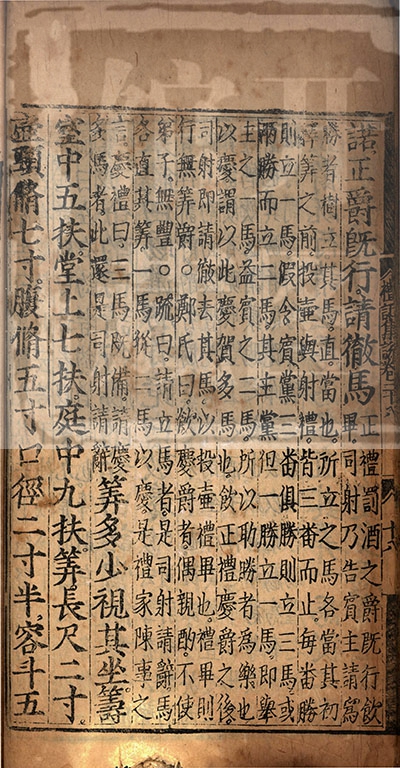 諾正爵既行請徹馬正禮罰酒之爵既行飲
畢司射乃告賓主請爲
勝者樹立其馬直當也所立之馬各當其初
釋筭之前投壺與射禮皆三番而止每番勝
則立一馬假令賓黨三番俱勝則立三馬或
兩勝而立二馬其主黨但一勝立一馬即舉
主之一馬益賓之二馬所以助勝者爲樂也
以慶謂以此慶賀多馬也飲正禮慶爵之後
司射即請徹去其馬以投壺禮畢也禮畢則
行無筭爵。鄭氏曰飲慶爵者偶親酌不使
弟子無豐。疏曰請立馬者是司射請辭馬
各直其筭一馬從二馬以慶是禮家陳事之
言慶禮曰三馬既備請慶
多馬者此還是司射請辭
筭多少視其坐籌
室中五扶堂上七扶庭中九扶筭長尺二寸
壺頸脩七寸腹脩五寸口徑二寸半容斗五